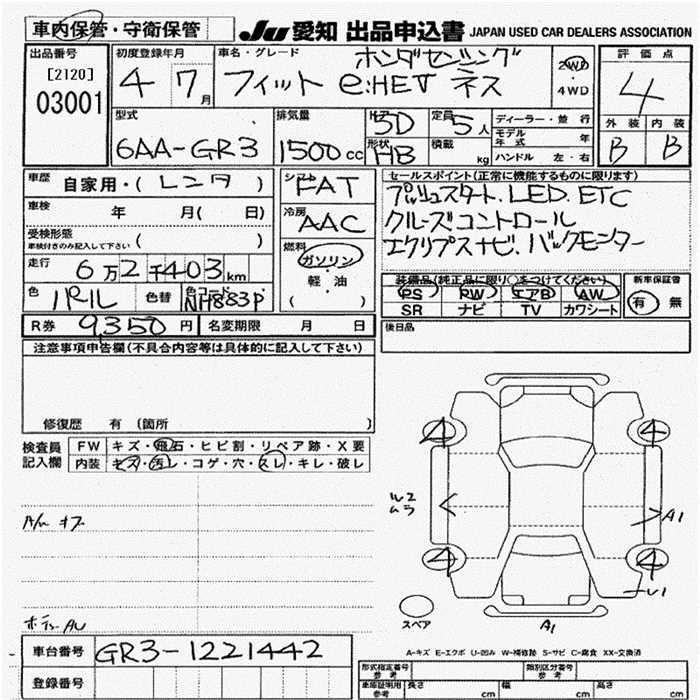 車内保管・守衛保管
Ju 愛知 出品申込書 JAPAN USED CAR DEALERS ASSOCIATION
出品番号
[2120]
03001
初度登録年月
4 7 月
車名・グレード
ホンダセンシング
フィット e:HEV ネス
2WD
4WD
評価点
4
外装 内装
B B
型式
6AA-GR3
排気量
1500 cc
ドア
3D
形状
HB
定員
5 人
積載
kg
ディーラー・並行
モデル年式 年
ハンドル 左・右
車歴
自家用・(レンタ)
車検
年 月( 日)
受検形態
車検付きのみ記入して下さい ( )
走行
6万2千403km
色
パール
色替
色コード
NH883P
シフト
FAT
冷房
AAC
燃料
ガソリン
軽・油
( )
セールスポイント(正常に機能するものに限ります)
プッシュスタート. LED. ETC
クルーズコントロール
エクリプスナビ. バックモニター
装備品(純正品に限り○をつけてください)
PS PW エアB AW
SR ナビ TV カワシート
新車保証書
有 無
R券 9,350 円
名変期限 月 日
後日品
注意事項申告欄(不具合内容等は具体的に記入して下さい)
修復歴 有 (箇所 )
検査員
記入欄
FW キズ・飛石・ヒビ割・リペア跡・X要
内装 キズ・汚レ・コゲ・穴・スレ・キレ・破レ
4 4
ムラ
A1
4 4
スペア
A1
車台番号 GR3-1221442
登録番号
A-キズ E-エクボ U-凹み W-補修跡 S-サビ C-腐食 XX-交換済
型式指定番号
参考
類別区分番号
参考
車庫証明用
参考
長さ cm
幅 cm
高さ cm